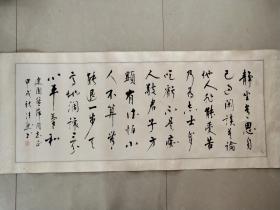 静坐常思自
己过闲谈莫论
他人非能受苦
乃为志士肯
吃亏不是痴
人敬君子方
顯有德怕小
人不算无
能退一步天
高地阔让三分
心平气和
建国
同志正
甲戌秋